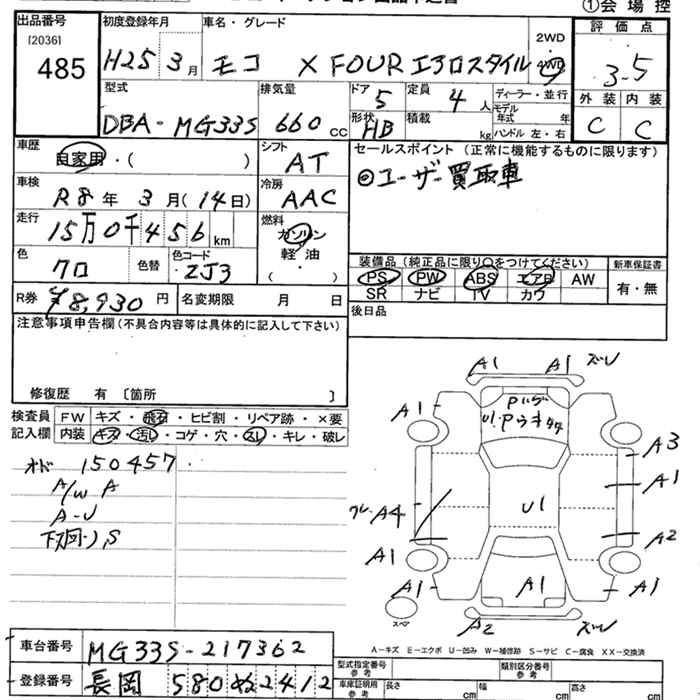 ①会場控
出品番号
[2036]
485
初度登録年月
H25 3月
車名・グレード
モコ X FOUR エアロスタイル
2WD
4WD
評価点
3.5
外装 内装
C C
型式
DBA-MG33S
排気量
660 cc
ドア
5
定員
4 人
形状
HB
積載
kg
ディーラー・並行
モデル年式 年
ハンドル 左・右
車歴
自家用・( )
シフト
AT
車検
R8年 3月(14日)
冷房
AAC
走行
15万0千456km
燃料
ガソリン
軽油
( )
色
クロ
色替
色コード
ZJ3
R券 ¥8,930円
名変期限 月 日
セールスポイント (正常に機能するものに限ります)
◎ユーザー買取車
装備品 (純正品に限り○をつけてください)
PS PW ABS エアB AW
SR ナビ TV カワ
新車保証書
有・無
後日品
注意事項申告欄 (不具合内容等は具体的に記入して下さい)
修復歴 有 〔箇所 〕
検査員
記入欄
FW キズ・飛石・ヒビ割・リペア跡・×要
内装 キズ・汚レ・コゲ・穴・スレ・キレ・破レ
150457
A/W A
A-U
下廻り,S
A1 A1 ズレ
A1
U1・P
A3
A1
U1
A4
A2
A1
A1 A1 A1
スペア
A2 ズレ
A-キズ E-エクボ U-凹み W-補修跡 S-サビ C-腐食 XX-交換済
車台番号 MG33S-217362
登録番号 長岡 580 ぬ 2412
型式指定番号
参考
類別区分番号
参考
車庫証明用
参考
長さ cm
幅 cm
高さ cm